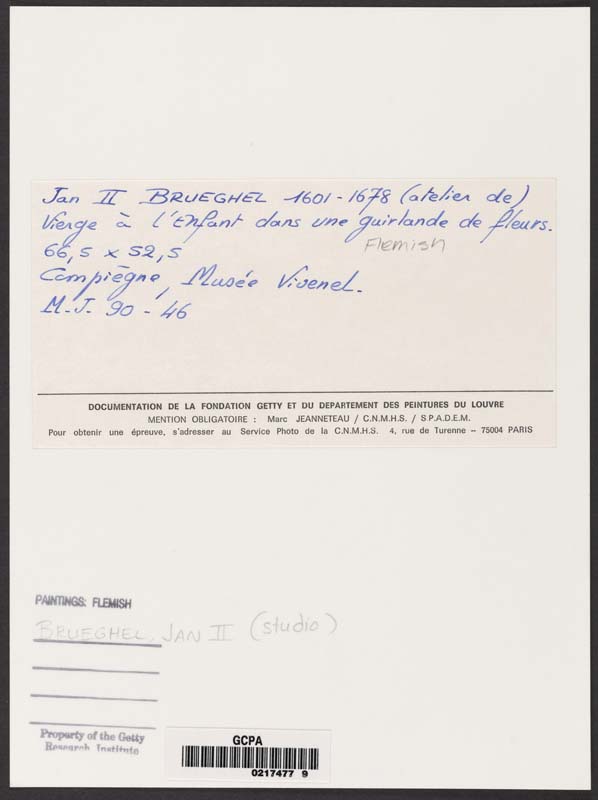 Jan II BRUEGHEL 1601-1678 (atelier de)
Vierge à l'Enfant dans une guirlande de fleurs.
Flemish
66,5 x 52,5
Compiègne, Musée Vivenel.
M.J. 90 - 46
DOCUMENTATION DE LA FONDATION GETTY ET DU DEPARTEMENT DES PEINTURES DU LOUVRE
MENTION OBLIGATOIRE : Marc JEANNETEAU / C.N.M.H.S. / S.P.A.D.E.M.
Pour obtenir une épreuve, s'adresser au Service Photo de la C.N.M.H.S. 4, rue de Turenne -- 75004 PARIS
PAINTINGS: FLEMISH
BRUEGHEL, JAN II (studio)
Property of the Getty
Research Institute
GCPA
0217477 9